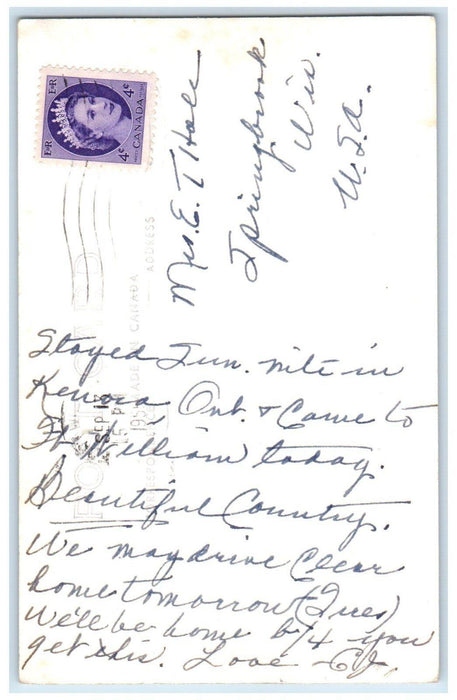 E II R
4¢
CANADA
E II R
4¢
Mrs. E. T Hale
Springbrook
Wis.
U.S.A.
ADDRESS
MADE IN CANADA
POST CARD
SEP 15
PM
195
Stayed Sun. nite in
Kenora Ont. & Came to
Ft William today.
Beautiful Country.
We may drive Clear
home tomorrow (Tues)
We'll be home b/4 you
get this. Love -